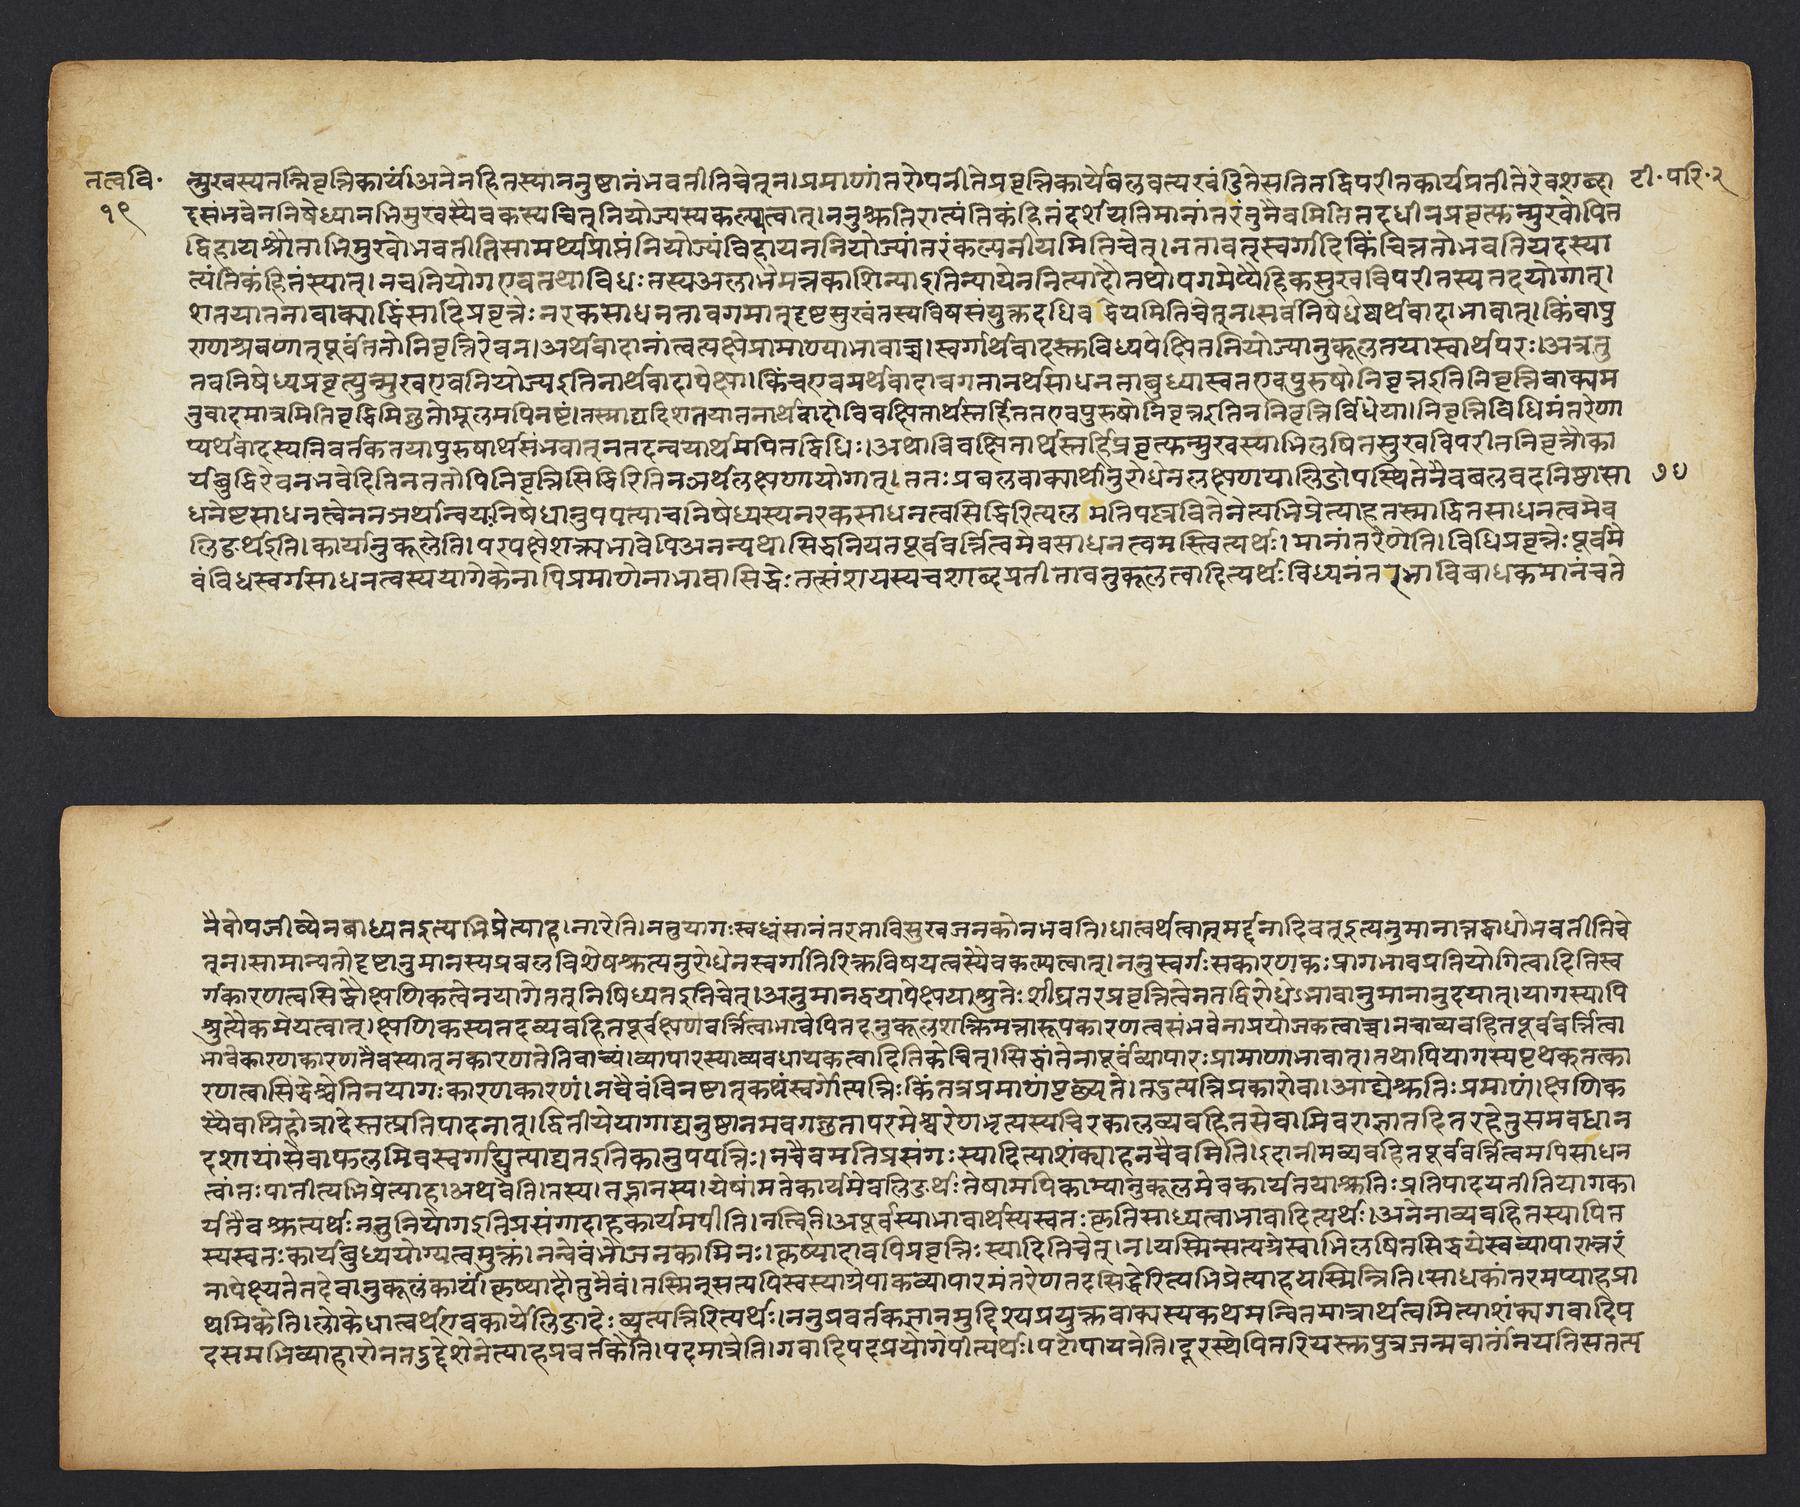 तत्ववि॰
१९
टी॰परि॰२
७४
त्मुखस्यतन्निवृत्तिकार्यं।अनेनहितस्याननुष्ठानंभवतीतिचेत्न।प्रमाणांतरोपनीतेप्रवृत्तिकार्येबलवत्यखंडितेसतितद्विपरीतकार्यप्रतीतेरेवशब्दा
दसंभवेननिषेध्यानभिमुखस्यैवकस्यचित्नियोज्यस्यकल्प्यत्वात्।ननुश्रुतिरात्यंतिकंहितंदर्शयतिमानांतरंतुनैवमितितदधीनप्रवृत्त्युन्मुखोपित
द्विहायश्रौताभिमुखोभवतीतिसामर्थ्यप्राप्तंनियोज्यंविहायननियोज्यांतरंकल्पनीयमितिचेत्।नतावत्स्वर्गादिकिंचिन्नतोभवतियदस्या
त्यंतिकंहितंस्यात्।नचनियोगएवतथाविधःतस्यअलाभेमन्नकाशिन्याइतिन्यायेननित्यादौतथोपगमेप्यैहिकसुखविपरीतस्यतदयोगात्।
शतयातनावाक्याद्धिंसादिप्रवृत्तेःनरकसाधनतावगमात्दृष्टसुखंतस्यविषसंयुक्तदधिवद्धेयमितिचेत्न।सर्वनिषेधेष्वर्थवादाभावात्।किंवापु
राणश्रवणात्पूर्वंततोनिवृत्तिरेवन।अर्थवादानांत्वत्पक्षेप्रामाण्याभावाच्च।स्वर्गार्थवादस्तुविध्यपेक्षितनियोज्यानुकूलतयास्वार्थपरः।अत्रतु
तवनिषेध्यप्रवृत्त्युन्मुखएवनियोज्यइतिनार्थवादापेक्षा।किंचएवमर्थवादावगतानर्थसाधनताबुध्यास्वतएवपुरुषोनिवृत्तइतिनिवृत्तिवाक्यम
नुवादमात्रमितिवृद्धिमिछतोमूलमपिनष्टं।तस्माद्यदिशतयातनार्थवादोविवक्षितार्थस्तर्हिततएवपुरुषोनिवृत्तइतिननिवृत्तिर्विधेया।निवृत्तिविधिमंतरेणा
प्यर्थवादस्यनिवर्तकतयापुरुषार्थसंभवात्नतदन्वयार्थमपितद्विधिः।अथाविवक्षितार्थस्तर्हिप्रवृत्त्युन्मुखस्याभिलषितसुखविपरीतनिवृत्तौका
र्यबुद्धिरेवनभवेदितिनततोपिनिवृत्तिसिद्धिरितिनअर्थलक्षणायोगात्।ततःप्रबलवाक्यार्थानुरोधेनलक्षणयालिङोपस्थितेनैवबलवदनिष्ठासा
धनेष्टसाधनत्वेननञर्थान्वयःनिषेधानुपपत्याचनिषेध्यस्यनरकसाधनत्वसिद्धिरित्यलमतिपल्लवितेनेत्यभिप्रेत्याहतस्माद्धितसाधनत्वमेव
लिङर्थइति।कार्यानुकूलेति।परपक्षेशक्त्यभावेपिअनन्यथासिद्धनियतपूर्ववर्त्तित्वमेवसाधनत्वमस्त्वित्यर्थः।मानांतरेणेति।विधिप्रवृत्तेःपूर्वमे
वंविधस्वर्गसाधनत्वस्ययागेकेनापिप्रमाणेनाभावासिद्धेःतत्संशयस्यचशाब्दप्रतीतावनुकूलत्वादित्यर्थःविध्यनंतरभाविबाधकमानंचते
नैवोपजीव्येनबाध्यतइत्यभिप्रेत्याह।नारेति।ननुयागःस्वध्वंसानंतरभाविसुखजनकोनभवति।धात्वर्थत्वात्मर्द्दनादिवत्इत्यनुमानान्नद्बाधोभवतीतिचे
त्न।सामान्यतोदृष्टानुमानस्यप्रबलविशेषश्रुत्यनुरोधेनस्वर्गातिरिक्तविषयत्वस्यैवकल्प्यत्वात्।ननुस्वर्गःसकारणकःप्रागभावप्रतियोगित्वादितिस्व
र्गकारणत्वसिद्धौक्षणिकत्वेनयागेतत्निषिध्यतइतिचेत्।अनुमानद्वयापेक्षयाश्रुतेःशीघ्रतरप्रवृत्तित्वेनतद्विरोधेऽभावानुमानानुदयात्।यागस्यापि
श्रुत्यैकमेयत्वात्।क्षणिकस्यतदव्यवहितपूर्वक्षणवर्त्तित्वाभावेपितदनुकूलशक्तिमत्तारूपकारणत्वसंभवेनाप्रयोजकत्वाच्च।नचाव्यवहितपूर्ववर्त्तित्वा
भावेकारणकारणतैवस्यात्नकारणतेतिवाच्यं।व्यापारस्याव्यवधायकत्वादितिकेचित्।सिद्धांतेनापूर्वंव्यापारःप्रामाणाभावात्।तथापियागस्यपृथक्तत्का
रणत्वासिद्धेश्चेतिनयागःकारणकारणं।नचैवंविनष्टात्कथंस्वर्गोत्पत्तिःकिंतत्रप्रमाणंपृछ्यते।तउत्पत्तिप्रकारोवा।आद्येश्रुतिःप्रमाणं।क्षणिक
स्यैवाग्निहोत्रादेस्तत्प्रतिपादनात्।द्वितीयेयागाद्यनुष्ठानमवगछतापरमेश्वरेणभृत्यस्यचिरकालव्यवहितसेवामिवराज्ञातदितरहेतुसमवधान
दशायांसेवाफलमिवस्वर्गाद्युत्पाद्यतइतिकानुपपत्तिः।नचैवमतिप्रसंगःस्यादित्याशंक्याहनचैवमिति।इदानीमव्यवहितपूर्ववर्त्तित्वमपिसाधन
त्वांतःपातीत्यभिप्रेत्याह।अथवेति।तस्य।तद्भानस्य।येषांमतेकार्यमेवलिङर्थःतेषामपिकाम्यानुकूलमेवकार्यतयाश्रुतिःप्रतिपादयतीतियागका
र्यतैवश्रुत्यर्थःनतुनियोगइतिप्रसंगादाहकार्यमपीति।नत्विति।अपूर्वस्याभावार्थस्यस्वतःकृतिसाध्यत्वाभावादित्यर्थः।अनेनाव्यवहितस्यापित
स्यस्वतःकार्यबुध्ययोग्यत्वमुक्तं।नन्वेवंभोजनकामिनः।कृष्यादावपिप्रवृत्तिःस्यादितिचेत्।न।यस्मिन्सत्यग्रेस्वाभिलषितसिद्धयेस्वव्यापारान्तरं
नापेक्ष्यतेतदेवानुकूलंकार्यं।कृष्यादौतुनैवं।तस्मिन्सत्यपिस्वस्याग्रेपाकव्यापारमंतरेणतदसिद्धेरित्यभिप्रेत्याहयस्मिन्निति।साधकांतरमप्याहप्रा
थमिकेति।लोकेधात्वर्थएवकार्येलिङादेःव्युत्पत्तिरित्यर्थः।ननुप्रवर्तकज्ञानमुद्दिश्यप्रयुक्तवाक्यस्यकथमन्वितमात्रार्थत्वमित्याशंक्यगवादिप
दसमभिव्याहारोनतदुद्देशेनेत्याहप्रवर्तकेति।पदमात्रेति।गवादिपदप्रयोगेपीत्यर्थः।पटोपायनेति।दूरस्थेपितरियस्तुपुत्रजन्मवार्तांनयतिसतत्प